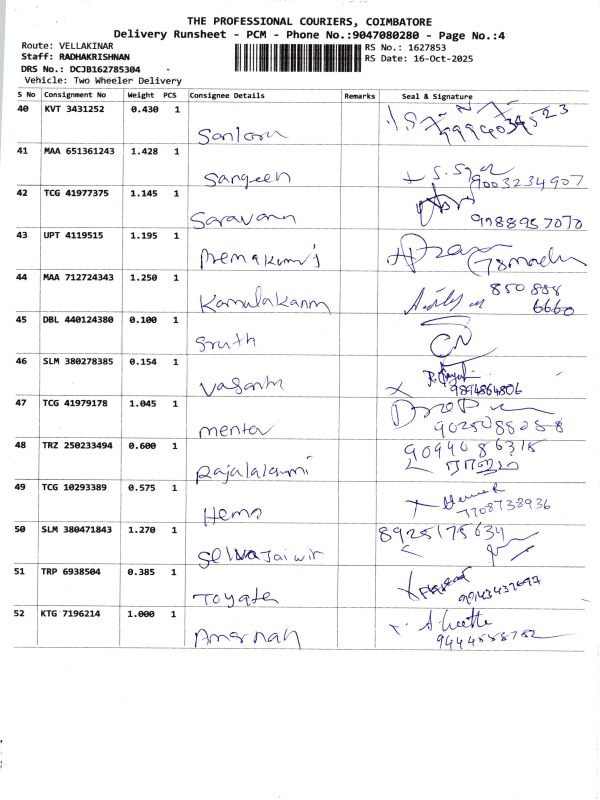 THE PROFESSIONAL COURIERS, COIMBATORE
Delivery Runsheet - PCM - Phone No.:9047080280 - Page No.:4
Route: VELLAKINAR
RS No.: 1627853
Staff: RADHAKRISHNAN
RS Date: 16-Oct-2025
DRS No.: DCJB162785304
Vehicle: Two Wheeler Delivery
S No Consignment No Weight PCS Consignee Details Remarks Seal & Signature
40 KVT 3431252 0.430 1
41 MAA 651361243 1.428 1
Sangeeth
9003234907
42 TCG 41977375 1.145 1
Saravana
9788957070
43 UPT 4119515 1.195 1
Premakumari
44 MAA 712724343 1.250 1
850888
Kamalakannan
6660
45 DBL 440124380 0.100 1
Sruth
CN
46 SLM 380278385 0.154 1
Vasanth
9894864806
47 TCG 41979178 1.045 1
mentor
9025088258
48 TRZ 250233494 0.600 1
9094086318
Rajalakshmi
49 TCG 10293389 0.575 1
Hema
7708738936
50 SLM 380471843 1.270 1
8925175634
51 TRP 6938504 0.385 1
Toyata
52 KTG 7196214 1.000 1